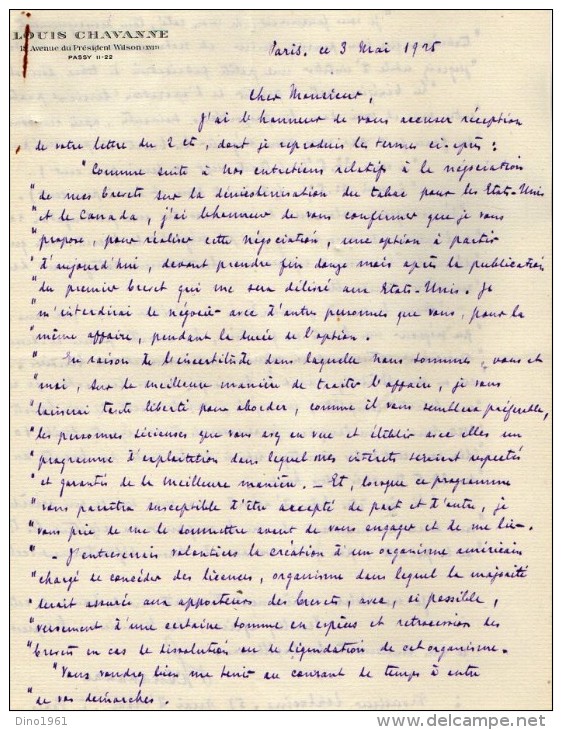 LOUIS CHAVANNE
12 Avenue du Président Wilson (XVIe)
PASSY 11-22
Paris, ce 3 Mai 1925
Cher Monsieur,
J'ai l'honneur de vous accuser réception
de votre lettre du 2 ct, dont je reproduis les termes ci-après :
"Comme suite à nos entretiens relatifs à la négociation
"de mes brevets sur la dénicotinisation du tabac pour les Etats-Unis
"et le Canada, j'ai l'honneur de vous confirmer que je vous
"propose, pour réaliser cette négociation, une option à partir
"d'aujourd'hui, devant prendre fin douze mois après la publication
"du premier brevet qui me sera délivré aux Etats-Unis. Je
"m'interdirai de négocier avec d'autres personnes que vous, pour la
"même affaire, pendant la durée de l'option.
"En raison de l'incertitude dans laquelle nous sommes, vous et
"moi, sur la meilleure manière de traiter l'affaire, je vous
"laisserai toute liberté pour aborder, comme il vous semblera préférable,
"les personnes sérieuses que vous avez en vue et établir avec elles un
"programme d'exploitation dans lequel mes intérêts seraient respectés
"et garantis de la meilleure manière. - Et, lorsque ce programme
"vous paraîtra susceptible d'être accepté de part et d'autre, je
"vous prie de me le soumettre avant de vous engager et de me lier.
" - J'entreverrais volontiers la création d'un organisme américain
"chargé de concéder des licences, organisme dans lequel la majorité
"serait assurée aux apporteurs des brevets, avec, si possible,
"versement d'une certaine somme en espèces et rétrocession des
"brevets en cas de dissolution ou de liquidation de cet organisme.
"Vous voudrez bien me tenir au courant de temps à autre
"de vos démarches.
Dino1961
www.delcampe.net